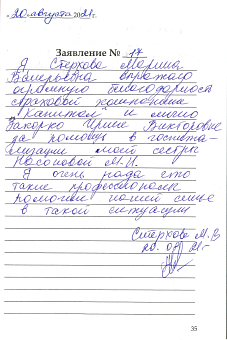 20 августа 2021г.
Заявление № 17
Я Стеркова Марина
Валерьевна выражаю
огромную благодарность
страховой компании
"Капитал и лично
Захарко Ирине Викторовне
за помощь в госпитали-
лизации моей сестры
Насоновой М.И.
Я очень рада что
такие профессионалы
помогли нашей семье
в такой ситуации
Стеркова М.В
20. 08 21г.
35